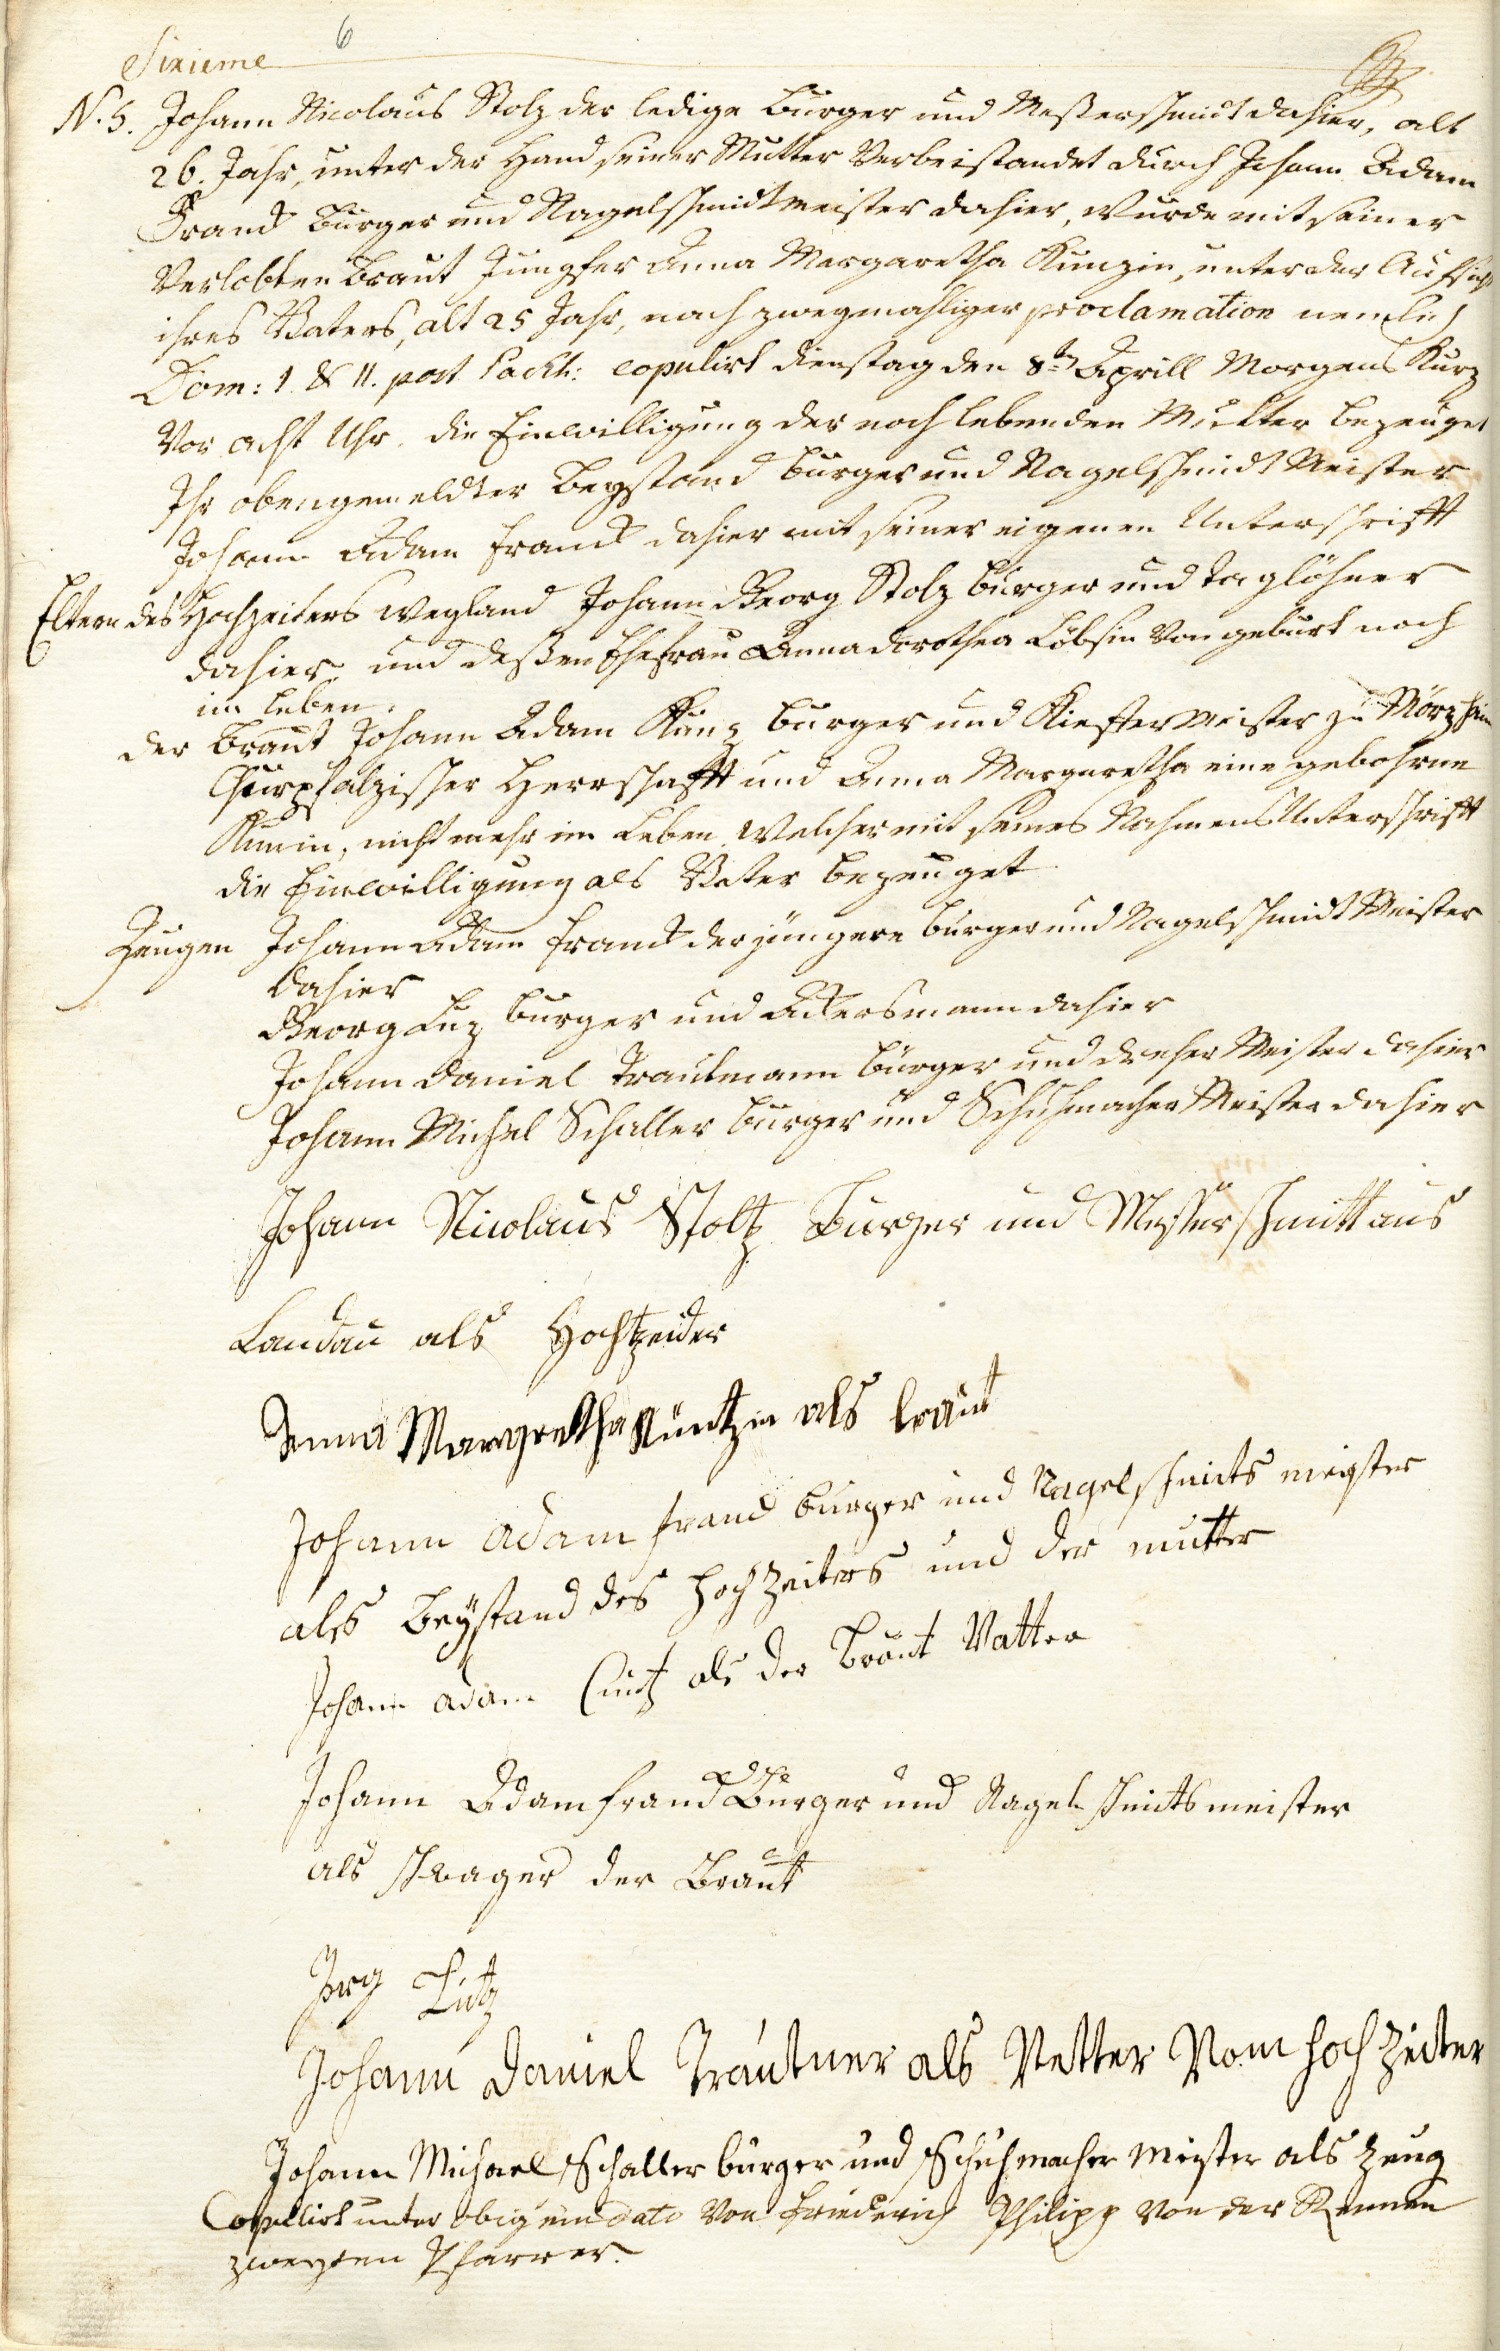 Sixieme 6
N. 5. Johann Nicolaus Stolz der ledige Burger und Meßerschmidt dahier, alt
26. Jahr, unter der Hand seiner Mutter Verbeistandet durch Johann Adam
Franck Burger und Nagelschmidtmeister dahier, wurde mit seiner
Verlobten Braut Jungfer Anna Margaretha Kunzin, unter der Aufsicht
ihres Vaters, alt 25 Jahr, nach zweymahliger proclamation nemlich
Dom: 1. & 11. post copulirt Dienstag den 8ten Aprill Morgens Kurz
Vor acht Uhr. die Einwilligung der noch lebenden Mutter bezeuget
Ihr obengemeldter Beystand Burger und Nagelschmidt Meister
Johann Adam Franck dahier mit seiner eigenen Unterschrifft
Eltern des Hochzeiters weyland Johann Georg Stolz Burger und Taglöhner
dahier und deßen Ehefrau Anna Dorothea Löbsin Von geburt noch
im Leben.
der Braut Johann Adam Kunz Burger und Kieffermeister zu Mörzheim
Churpfalzischer Herrschafft und Anna Margaretha eine gebohrne
nicht mehr im Leben. Welcher mit seines Nahmens Unterschrifft
die Einwilligung als Vater bezeuget
Zeugen Johann Adam Franck der jüngere Burger und Nagelschmidt Meister
dahier
Georg Luz Burger und Ackersmann dahier
Johann Daniel Trautmann Burger und Dreher Meister dahier
Johann Michel Schaller Burger und Schuhmacher Meister dahier
Johann Nicolaus Stoltz Burger und Messerschmitt aus
Landau als Hochtzeider
Anna Margretha Küntzin als braut
Johann Adam franck burger und Nagelschmits meister
als Beystand des Hochzeiters und der mutter
Johann adam Cuntz als der Braut Vatter
Johann Adam franck Burger und Nagelschmits meister
als schwager der Braut
Jerg Lutz
Johann Daniel Trautner als Vetter Vom hoch Zeiter
Johann Michael Schaller burger und Schuhmacher Meister als Zeug
Copulirt unter obigem dato Von Friederich Philipp Von der
zweyten Pfarrer.